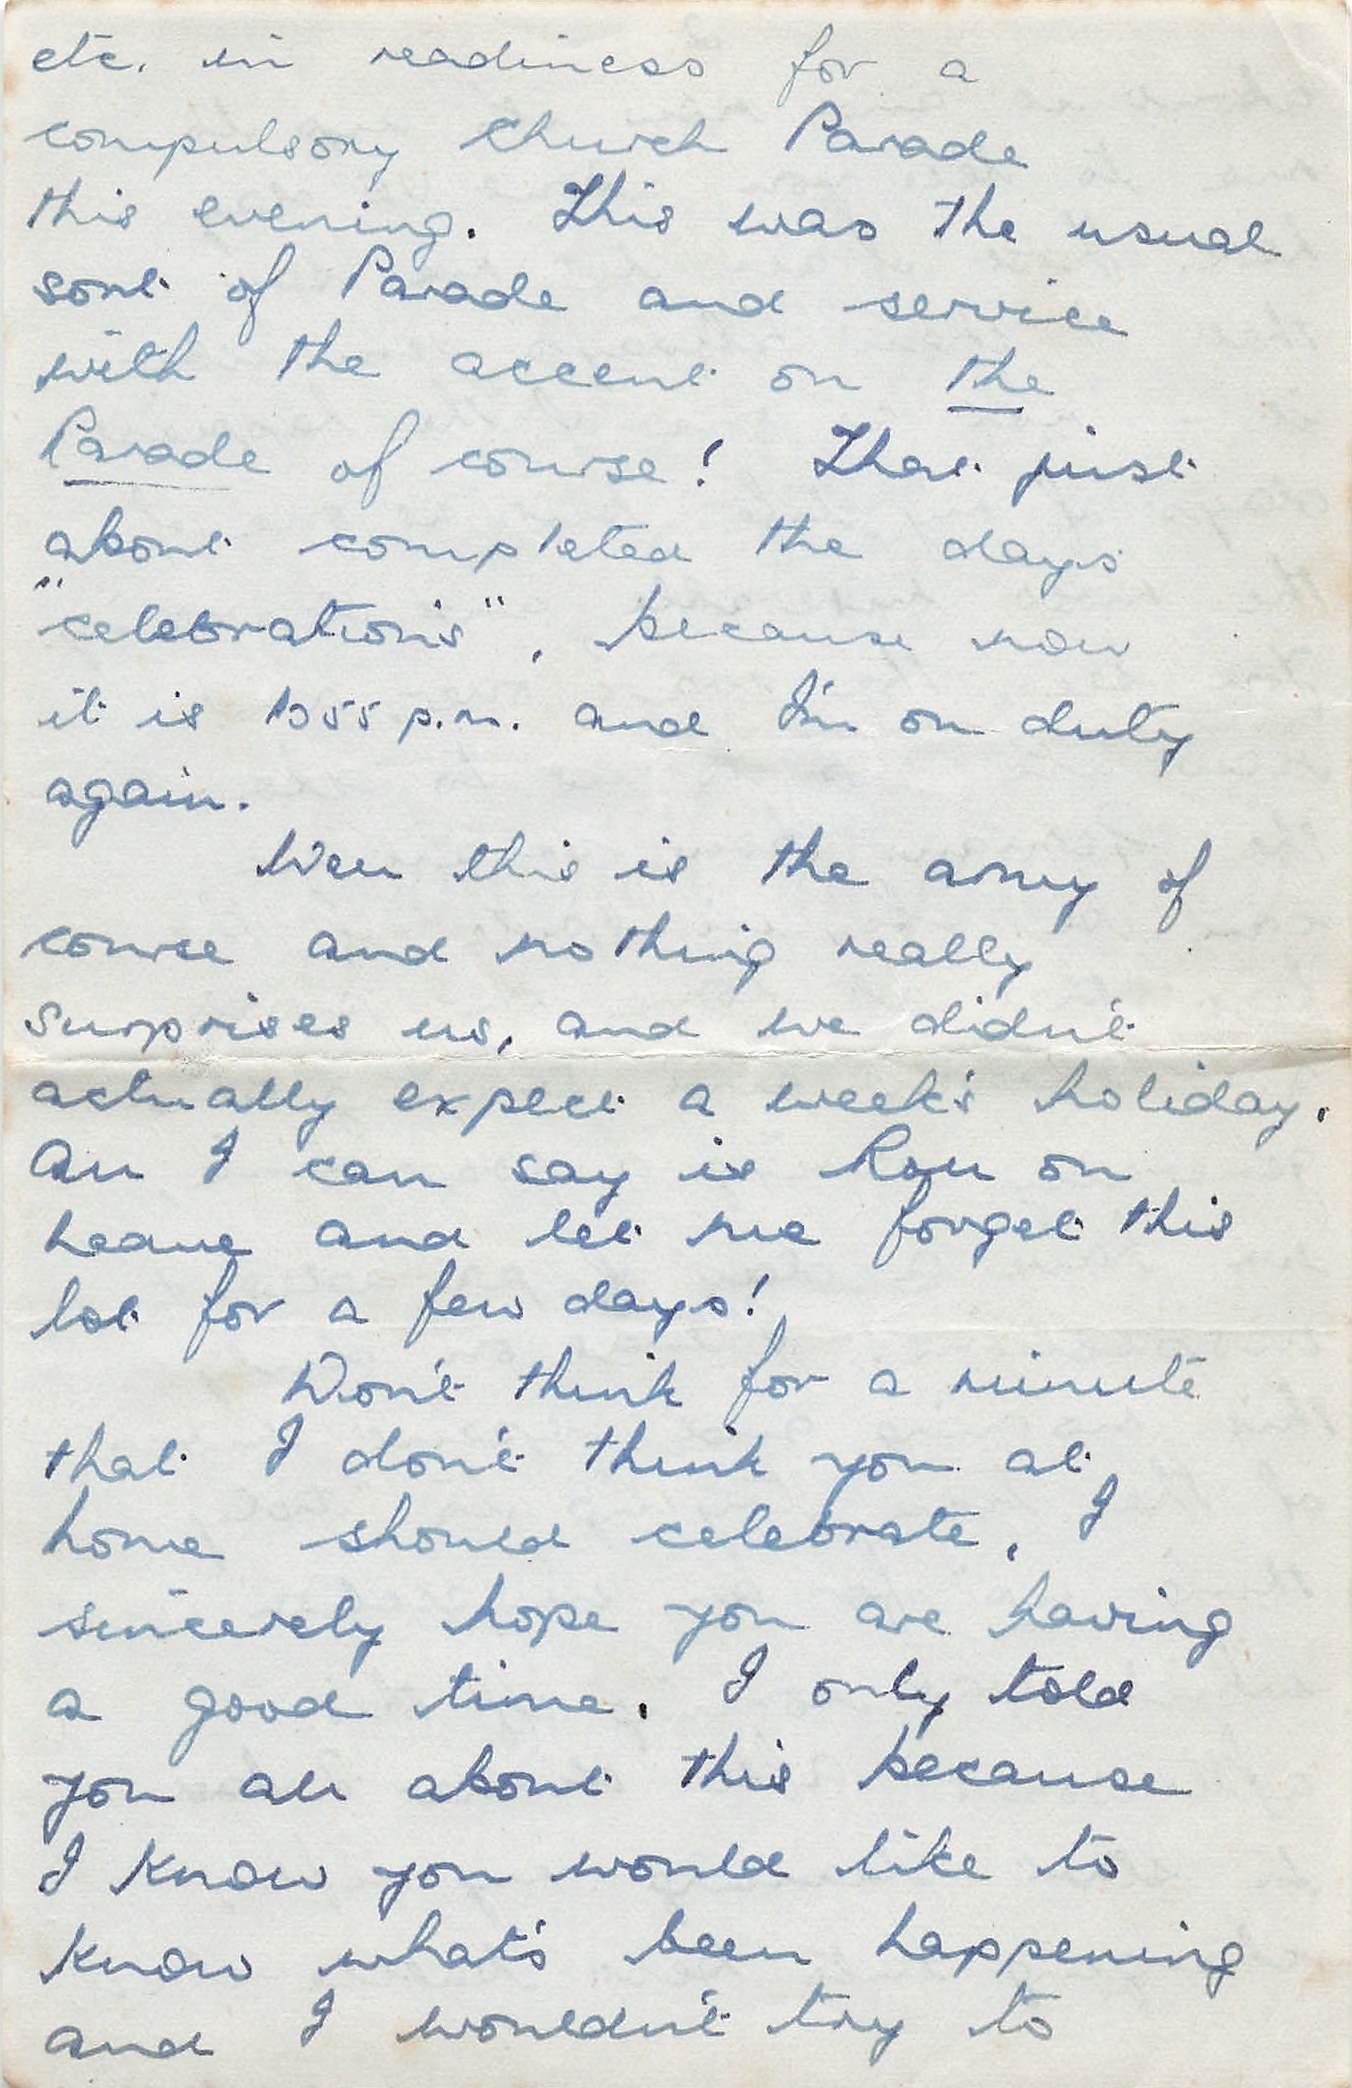 etc. in readiness for a
compulsory Church Parade
this evening. This was the usual
sort of Parade and service
with the accent on the
Parade of course! That just
about completed the days
"celebrations", because now
it is 1055 p.m. and I'm on duty
again.
Well this is the army of
course and nothing really
surprises us, and we didn't
actually expect a week's holiday.
All I can say is Roll on
leave and let me forget this
lot for a few days!
Don't think for a minute
that I don't think you at
home should celebrate, I
sincerely hope you are having
a good time. I only told
you all about this because
I know you would like to
know what's been happening
and I wouldn't try to